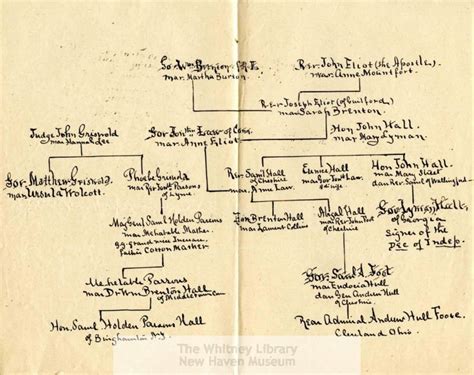 Gov. Wm Brenton of R.I.
mar. Martha Burton.
Rev. John Eliot (the Apostle)
mar. Anne Mountfort.
Rev. Joseph Eliot (of Guilford)
mar. Sarah Brenton
Judge John Griswold
mar. Hannah Lee
Gov. Jonthn Law of Conn.
mar. Anne Eliot
Hon John Hall
mar. Mary Lyman.
Gov. Matthew Griswold
mar. Ursula Wolcott.
Phoebe Griswold
mar Rev Jonth Parsons
of Lyme.
Rev. Saml Hall
of Cheshire
mar. Ann Law.
Eunice Hall
mar
Hon John Hall.
mar Mary Street
dau Rev. Saml of Wallingford
Maj Genl Saml Holden Parsons
mar. Mehetable Mather.
gg. grand niece Increase
Cotton Mather
Hon Brenton Hall
mar Lament Collins
Abigal Hall
mar Rev John Foot
of Cheshire
Gov Lyman Hall
of Georgia
signer of the
Dec of Indep.
Mehetable Parsons
mar Dr Wm Brenton Hall
of Middletown
Gov. Saml A. Foot
mar Eudocia Hull
dau Gen Andrew Hull
of Cheshire
Hon. Saml Holden Parsons Hall
of Binghamton N.Y.
Rear Admiral Andrew Hull Foote
Cleveland Ohio.
The Whitney Library
New Haven Museum